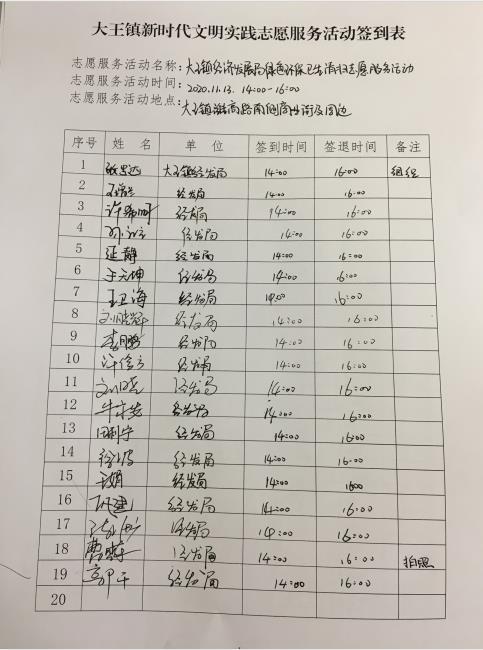 大王镇新时代文明实践志愿服务活动签到表
志愿服务活动名称：大王镇经济发展局绿色环保卫生清扫志愿服务活动
志愿服务活动时间：2020.11.13. 14:00-16:00
志愿服务活动地点：大王镇潍高路南侧商业街及周边
序号 姓 名 单 位 签到时间 签退时间 备注
1 大王镇经发局 14:00 16:00 组织
2 经发局 14:00 16:00
3 许希 经发局 14:00 16:00
4 经发局 14:00 16:00
5 延静 经发局 14:00 16:00
6 于元坤 经发局 14:00 16:00
7 王卫海 经发局 14:00 16:00
8 经发局 14:00 16:00
9 李鹏 经发局 14:00 16:00
10 经发局 14:00 16:00
11 刘晓 经发局 14:00 16:00
12 经发局 14:00 16:00
13 经发局 14:00 16:00
14 经发局 14:00 16:00
15 于娟 经发局 14:00 16:00
16 建 经发局 14:00 16:00
17 经发局 14:00 16:00
18 曹 经发局 14:00 16:00 拍照
19 经发局 14:00 16:00
20